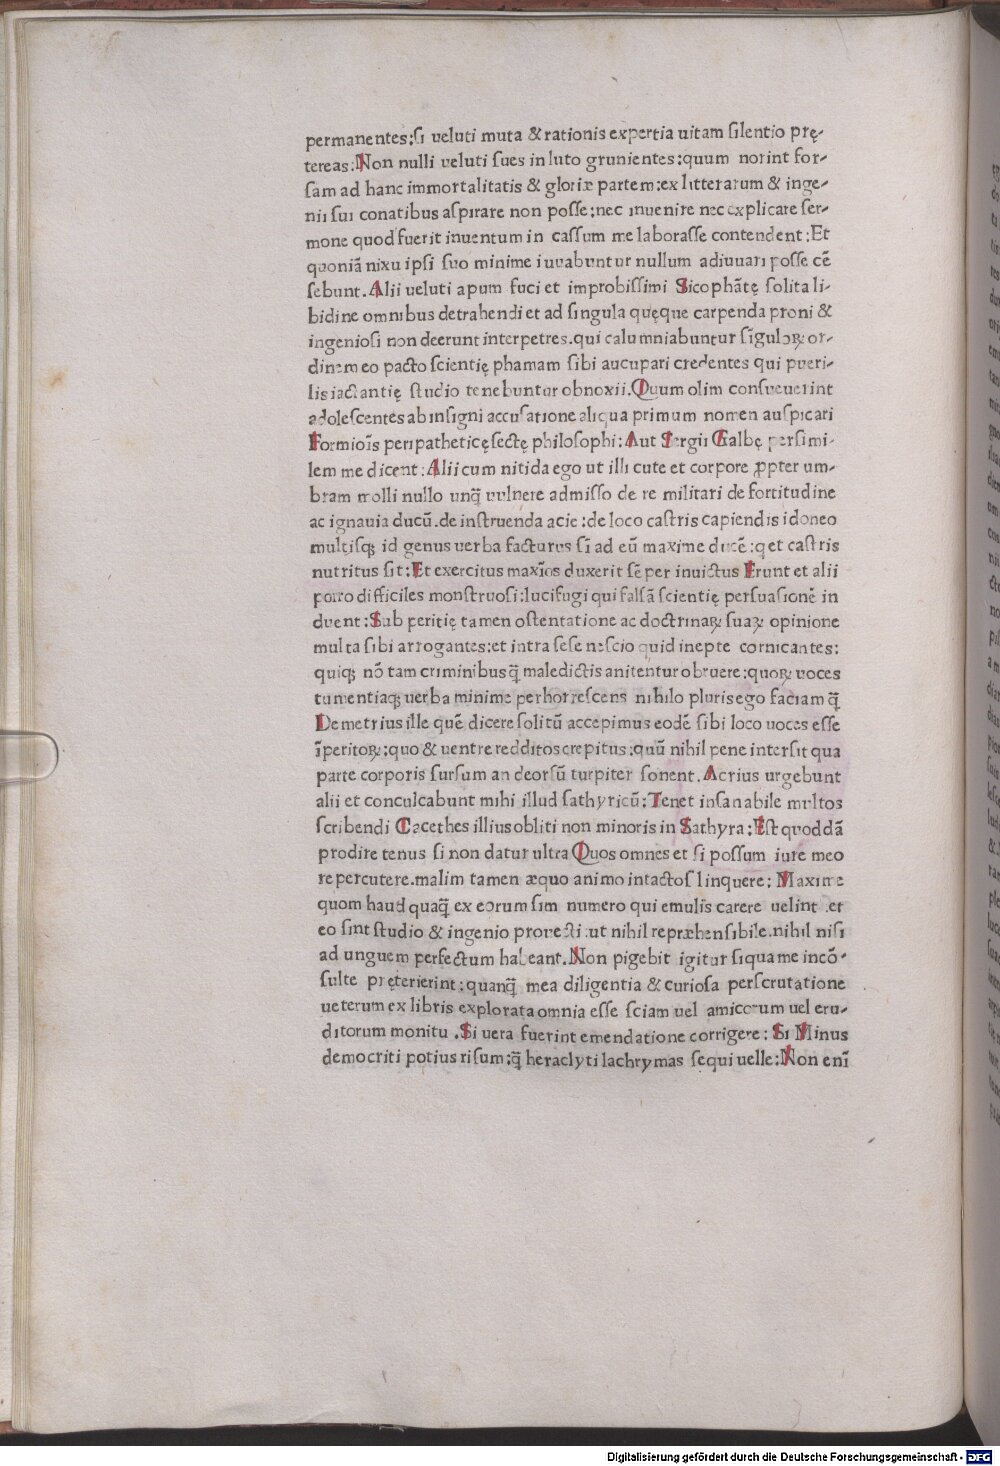 permanentes:si ueluti muta & rationis expertia uitam silentio prę-
tereas:Non nulli ueluti sues in luto grunientes:quum norint for-
sam ad hanc immortalitatis & gloriæ partem:ex litterarum & inge-
nii sui conatibus aspirare non posse:nec inuenire nec explicare ser-
mone quod fuerit inuentum in cassum me laborasse contendent:Et
quoniã nixu ipsi suo minime iuuabuntur nullum adiuuari posse cẽ
sebunt.Alii ueluti apum fuci et improbissimi Sicophãtę solita li-
bidine omnibus detrahendi et ad singula quęque carpenda proni &
ingeniosi non deerunt interpretes.qui calumniabuntur sĩguloꝝ or-
dinem eo pacto scientię phamam sibi aucupari credentes qui pueri-
lis iactantię studio tenebuntur obnoxii.Quum olim consueuerint
adolescentes ab insigni accusatione aliqua primum nomen auspicari
Formiõis peripatheticę sectę philosophi:Aut Sergii Galbę persimi-
lem me dicent:Alii cum nitida ego ut illi cute et corpore ꝓpter um-
bram molli nullo unq̃ vulnere admisso de re militari de fortitudine
ac ignauia ducũ.de instruenda acie:de loco castris capiendis idoneo
multisqꝫ id genus uerba facturus sĩ ad eũ maxime ducẽ:q et castris
nutritus sit:Et exercitus maxĩos duxerit sẽper inuictus Erunt et alii
porro difficiles monstruosi:lucifugi qui falsã scientię persuasionẽ in
duent:Sub peritię tamen ostentatione ac doctrinaꝝ suaꝝ opinione
multa sibi arrogantes:et intra sese nescio quid inepte cornicantes:
quiqꝫ nõ tam criminibus q̃ maledictis anitentur obruere:quoꝝ uoces
tumentiaqꝫ uerba minime perhorrescens nihilo pluris ego faciam q̃
Demetrius ille quẽ dicere solitũ accepimus eodẽ sibi loco uoces esse
ĩperitoꝝ:quo & uentre redditos crepitus:quũ nihil pene intersit qua
parte corporis sursum an deorsũ turpiter sonent.Acrius urgebunt
alii et conculcabunt mihi illud sathyricũ:Tenet insanabile multos
scribendi Cacethes illius obliti non minoris in Sathyra:Est quoddã
prodire tenus si non datur ultra Quos omnes et si possum iure meo
repercutere.malim tamen æquo animo intactos linquere:Maxime
quom haud quaq̃ ex eorum sim numero qui emulis carere uelint.et
eo sint studio & ingenio prouecti:ut nihil repræhensibile.nihil nisi
ad unguem perfectum habeant.Non pigebit igitur siqua me incõ-
sulte pręterierint:quanq̃ mea diligentia & curiosa perscrutatione
ueterum ex libris explorata omnia esse sciam uel amicorum uel eru-
ditorum monitu.Si uera fuerint emendatione corrigere:Si Minus
democriti potius risum:q̃ heraclyti lachrymas sequi uelle:Non enĩ
Digitalisierung gefördert durch die Deutsche Forschungsgemeinschaft - DFG